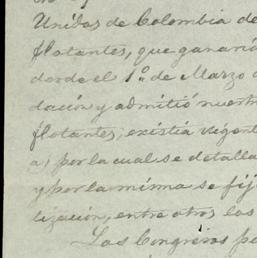 Unidos de Colombia de
flotantes, que ganaría
desde el 1º de Marzo
dación y admitió nuestr
flotantes, existía vigent
a, por la cual se detalla
y por la misma se fij
lización, entre otros los
Los Congresos p